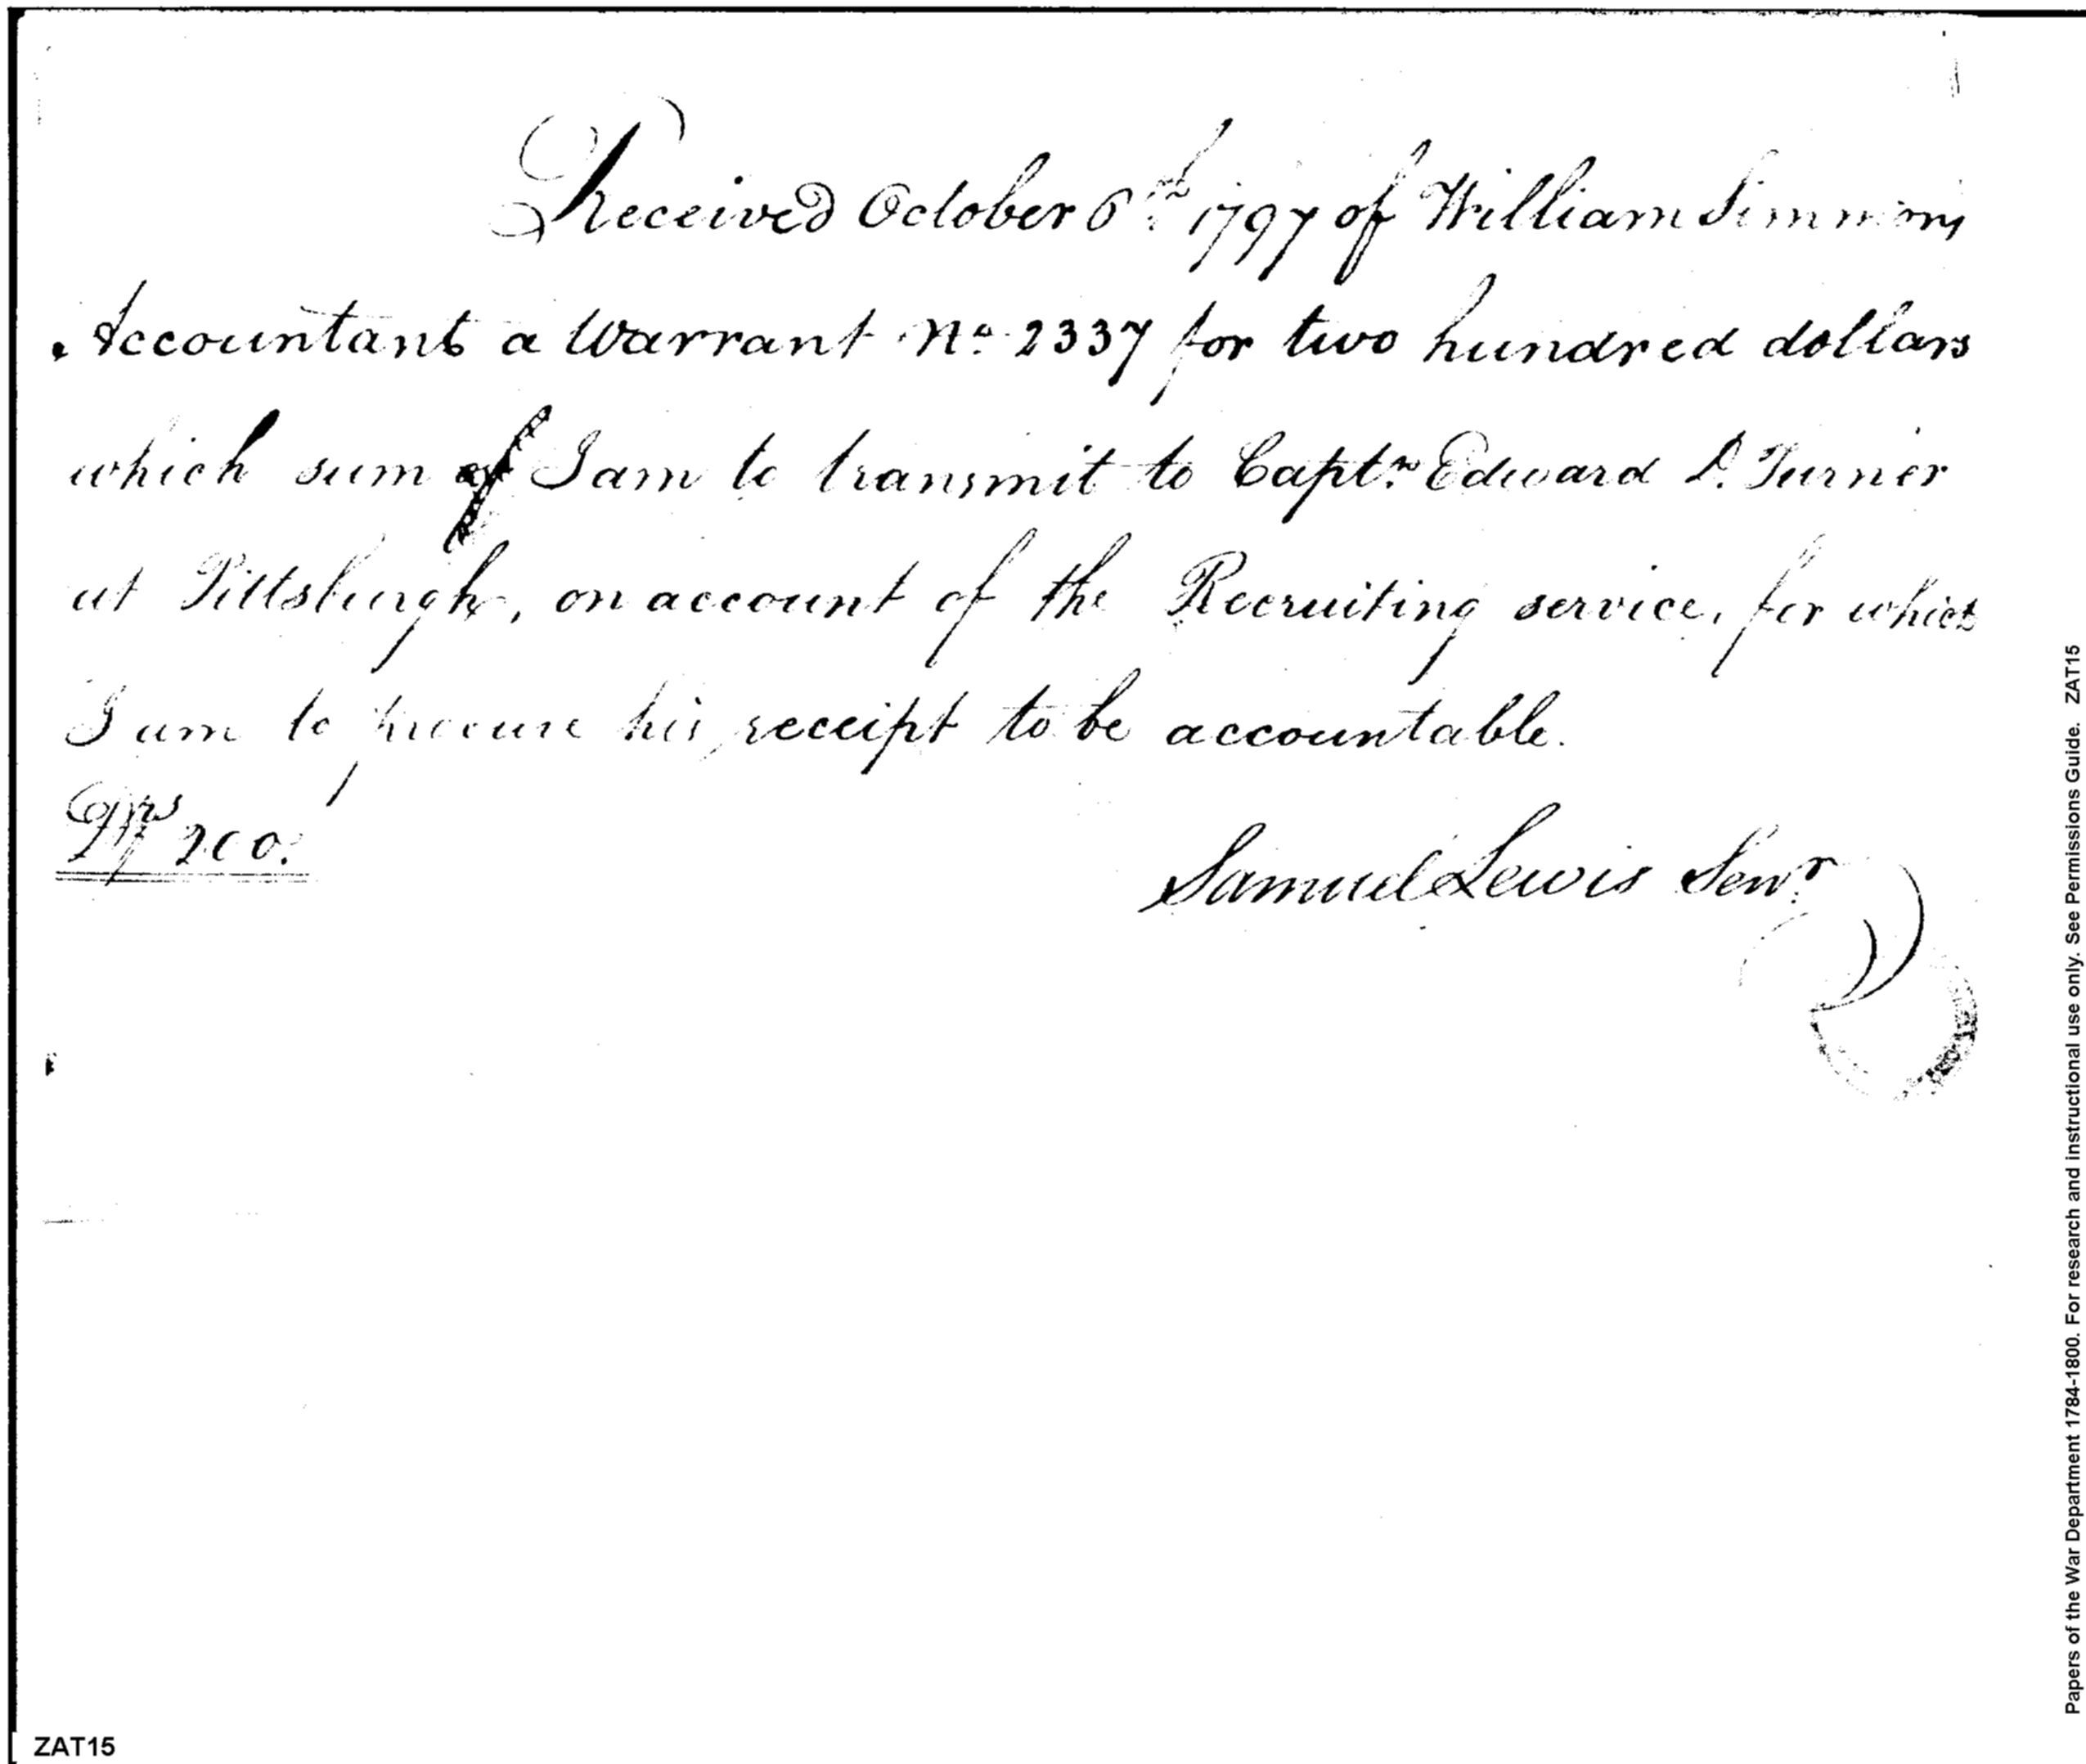 Received October 6th 1797 of William Simmons
Accountant a Warrant No. 2337 for two hundred dollars
which sum of I am to transmit to Captn. Edward D. Turner
at Pittsburgh, on account of the Recruiting service, for which
I am to procure his receipt to be accountable.
200.
Samuel Lewis Senr.
Papers of the War Department 1784-1800. For research and instructional use only. See Permissions Guide. ZAT15
ZAT15